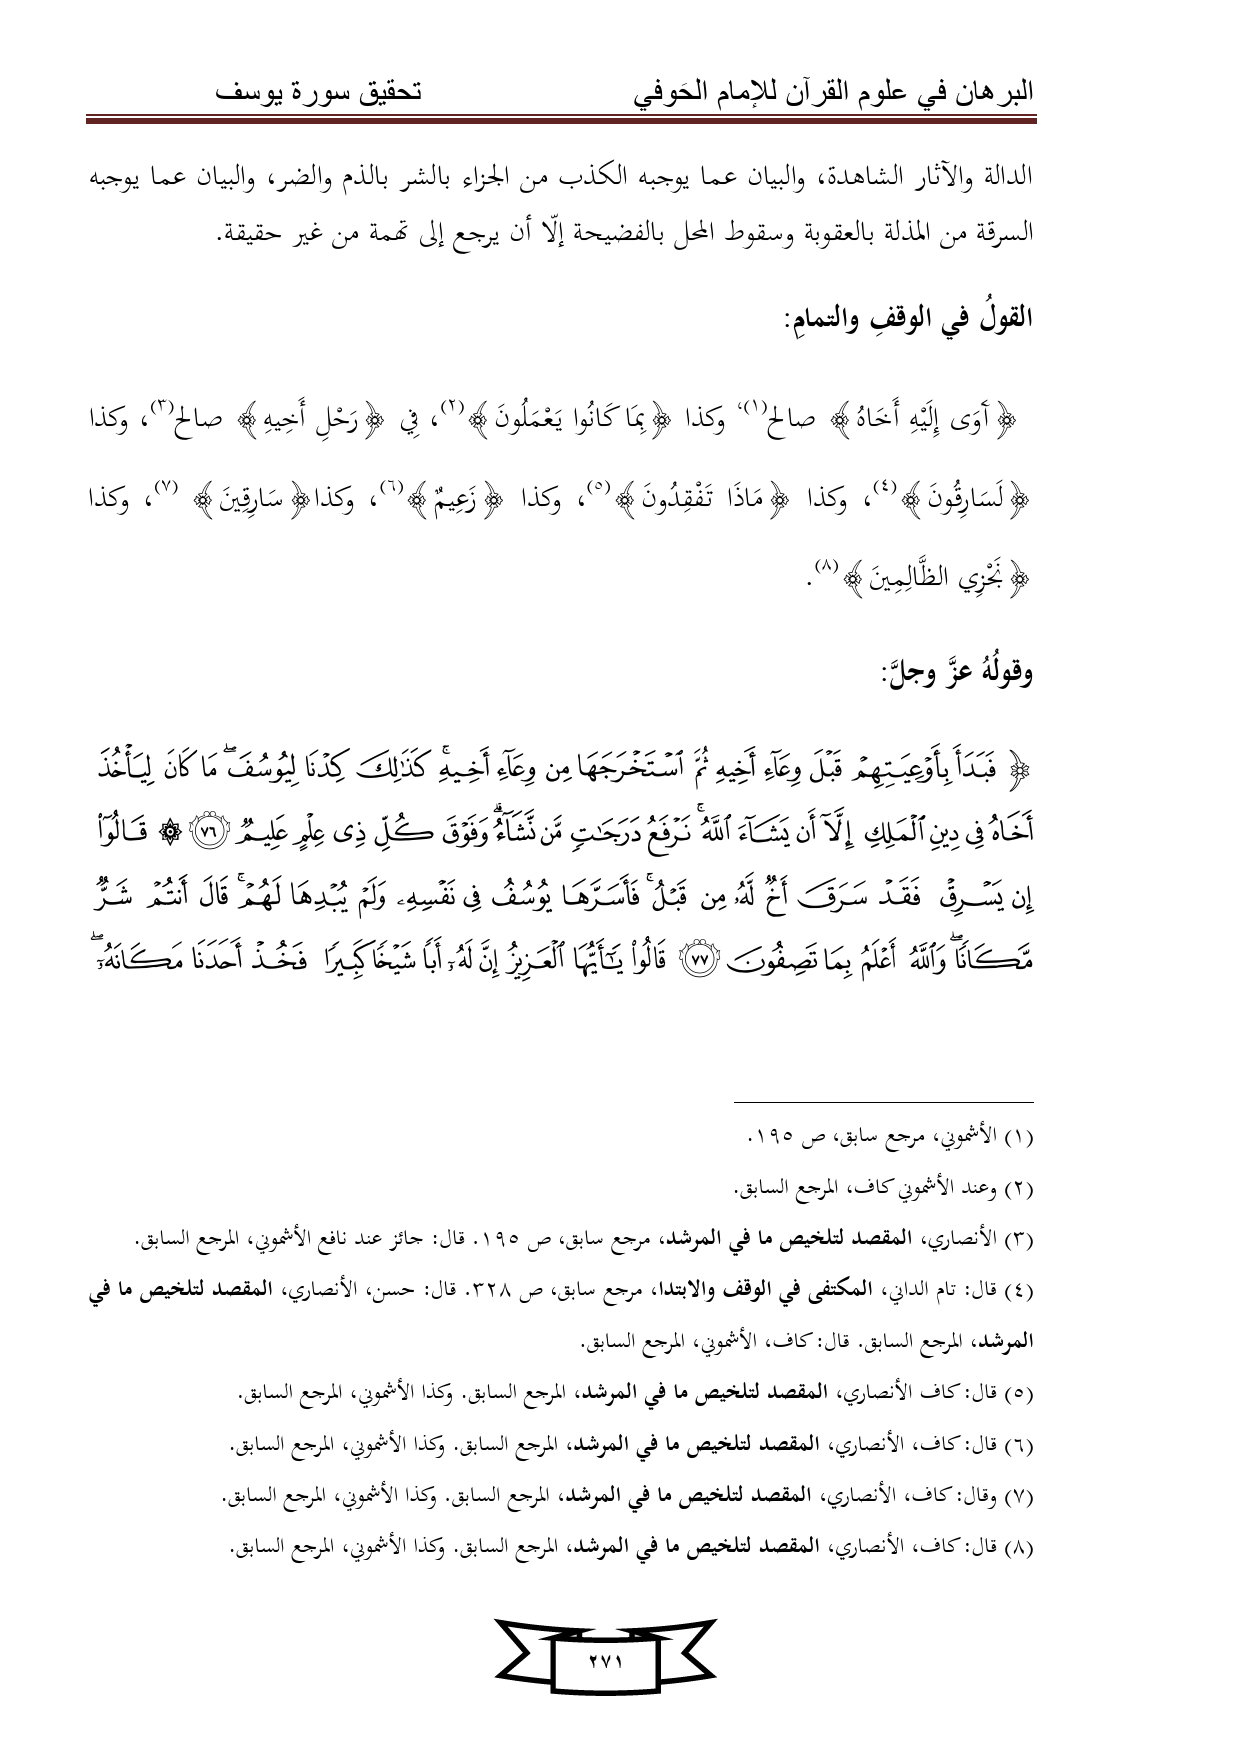 البرهان في علوم القرآن للإمام الحَوفي تحقيق سورة يوسف
الدالة والآثار الشاهدة، والبيان عما يوجبه الكذب من الجزاء بالشر بالذم والضر، والبيان عما يوجبه
السرقة من المذلة بالعقوبة وسقوط المحل بالفضيحة إلّا أن يرجع إلى تهمة من غير حقيقة.
القولُ في الوقفِ والتمامِ:
﴿آوَى إِلَيْهِ أَخَاهُ﴾ صالح(١)، وكذا ﴿بِمَا كَانُوا يَعْمَلُونَ﴾(٢)، فِي ﴿رَحْلِ أَخِيهِ﴾ صالح(٣)، وكذا
﴿لَسَارِقُونَ﴾(٤)، وكذا ﴿مَاذَا تَفْقِدُونَ﴾(٥)، وكذا ﴿زَعِيمٌ﴾(٦)، وكذا﴿سَارِقِينَ﴾ (٧)، وكذا
﴿نَجْزِي الظَّالِمِينَ﴾(٨).
وقولُهُ عزَّ وجلَّ:
﴿ فَبَدَأَ بِأَوۡعِيَتِهِمۡ قَبۡلَ وِعَآءِ أَخِيهِ ثُمَّ ٱسۡتَخۡرَجَهَا مِن وِعَآءِ أَخِيهِۚ كَذَٰلِكَ كِدۡنَا لِيُوسُفَۖ مَا كَانَ لِيَأۡخُذَ
أَخَاهُ فِي دِينِ ٱلۡمَلِكِ إِلَّآ أَن يَشَآءَ ٱللَّهُۚ نَرۡفَعُ دَرَجَٰتٖ مَّن نَّشَآءُۗ وَفَوۡقَ كُلِّ ذِي عِلۡمٍ عَلِيمٞ ٧٦ ۞ قَالُوٓاْ
إِن يَسۡرِقۡ فَقَدۡ سَرَقَ أَخٞ لَّهُۥ مِن قَبۡلُۚ فَأَسَرَّهَا يُوسُفُ فِي نَفۡسِهِۦ وَلَمۡ يُبۡدِهَا لَهُمۡۚ قَالَ أَنتُمۡ شَرّٞ
مَّكَانٗاۖ وَٱللَّهُ أَعۡلَمُ بِمَا تَصِفُونَ ٧٧ قَالُواْ يَٰٓأَيُّهَا ٱلۡعَزِيزُ إِنَّ لَهُۥٓ أَبٗا شَيۡخٗا كَبِيرٗا فَخُذۡ أَحَدَنَا مَكَانَهُۥٓۖ
(١) الأشموني، مرجع سابق، ص ١٩٥.
(٢) وعند الأشموني كاف، المرجع السابق.
(٣) الأنصاري، المقصد لتلخيص ما في المرشد، مرجع سابق، ص ١٩٥. قال: جائز عند نافع الأشموني، المرجع السابق.
(٤) قال: تام الداني، المكتفى في الوقف والابتدا، مرجع سابق، ص ٣٢٨. قال: حسن، الأنصاري، المقصد لتلخيص ما في
المرشد، المرجع السابق. قال: كاف، الأشموني، المرجع السابق.
(٥) قال: كاف الأنصاري، المقصد لتلخيص ما في المرشد، المرجع السابق. وكذا الأشموني، المرجع السابق.
(٦) قال: كاف، الأنصاري، المقصد لتلخيص ما في المرشد، المرجع السابق. وكذا الأشموني، المرجع السابق.
(٧) وقال: كاف، الأنصاري، المقصد لتلخيص ما في المرشد، المرجع السابق. وكذا الأشموني، المرجع السابق.
(٨) قال: كاف، الأنصاري، المقصد لتلخيص ما في المرشد، المرجع السابق. وكذا الأشموني، المرجع السابق.
٢٧١